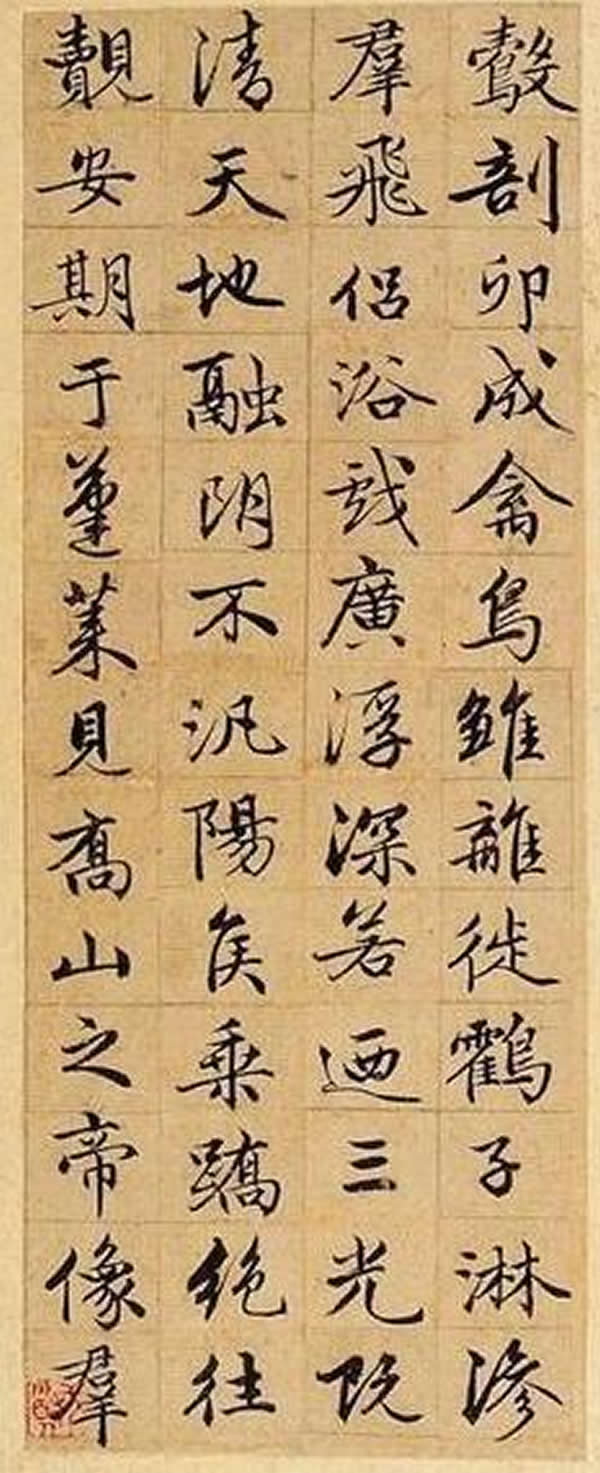 鷇剖卵成禽鳧雛離徙鸖子淋滲
羣飛侣浴戲廣浮深若迺三光既
清天地融朗不汎陽侯乘蹻絶往
覿安期于蓬萊見喬山之帝像羣